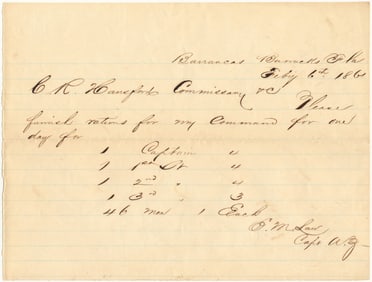 Barrancas Barracks Fla
Feby 6th 1861
C. R. Hansford Commissary &c
Please
furnish rations for my Command for one
day for
1 Captain 4
1 1st Lt 4
1 2nd " 4
1 3rd " 3
46 men 1 Each
E. M. Law
Capt